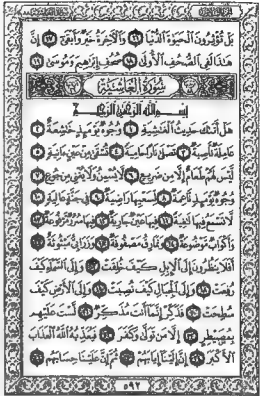 بَلْ تُؤْثِرُونَ الْحَيَوٰةَ الدُّنْيَا ١٦ وَالْآخِرَةُ خَيْرٌ وَأَبْقَىٰ ١٧ إِنَّ
هَٰذَا لَفِي الصُّحُفِ الْأُولَىٰ ١٨ صُحُفِ إِبْرَٰهِيمَ وَمُوسَىٰ ١٩
سُورَةُ الْغَاشِيَةِ
بِسْمِ اللَّهِ الرَّحْمَٰنِ الرَّحِيمِ
هَلْ أَتَىٰكَ حَدِيثُ الْغَٰشِيَةِ ١ وُجُوهٌ يَوْمَئِذٍ خَٰشِعَةٌ ٢
عَامِلَةٌ نَّاصِبَةٌ ٣ تَصْلَىٰ نَارًا حَامِيَةً ٤ تُسْقَىٰ مِنْ عَيْنٍ ءَانِيَةٍ ٥
لَّيْسَ لَهُمْ طَعَامٌ إِلَّا مِن ضَرِيعٍ ٦ لَّا يُسْمِنُ وَلَا يُغْنِي مِن جُوعٍ ٧
وُجُوهٌ يَوْمَئِذٍ نَّاعِمَةٌ ٨ لِّسَعْيِهَا رَاضِيَةٌ ٩ فِي جَنَّةٍ عَالِيَةٍ ١٠
لَّا تَسْمَعُ فِيهَا لَٰغِيَةً ١١ فِيهَا عَيْنٌ جَارِيَةٌ ١٢ فِيهَا سُرُرٌ مَّرْفُوعَةٌ ١٣
وَأَكْوَابٌ مَّوْضُوعَةٌ ١٤ وَنَمَارِقُ مَصْفُوفَةٌ ١٥ وَزَرَابِيُّ مَبْثُوثَةٌ ١٦
أَفَلَا يَنظُرُونَ إِلَى الْإِبِلِ كَيْفَ خُلِقَتْ ١٧ وَإِلَى السَّمَاءِ كَيْفَ
رُفِعَتْ ١٨ وَإِلَى الْجِبَالِ كَيْفَ نُصِبَتْ ١٩ وَإِلَى الْأَرْضِ كَيْفَ
سُطِحَتْ ٢٠ فَذَكِّرْ إِنَّمَا أَنتَ مُذَكِّرٌ ٢١ لَّسْتَ عَلَيْهِم
بِمُصَيْطِرٍ ٢٢ إِلَّا مَن تَوَلَّىٰ وَكَفَرَ ٢٣ فَيُعَذِّبُهُ اللَّهُ الْعَذَابَ
الْأَكْبَرَ ٢٤ إِنَّ إِلَيْنَا إِيَابَهُمْ ٢٥ ثُمَّ إِنَّ عَلَيْنَا حِسَابَهُم ٢٦
٥٩٢